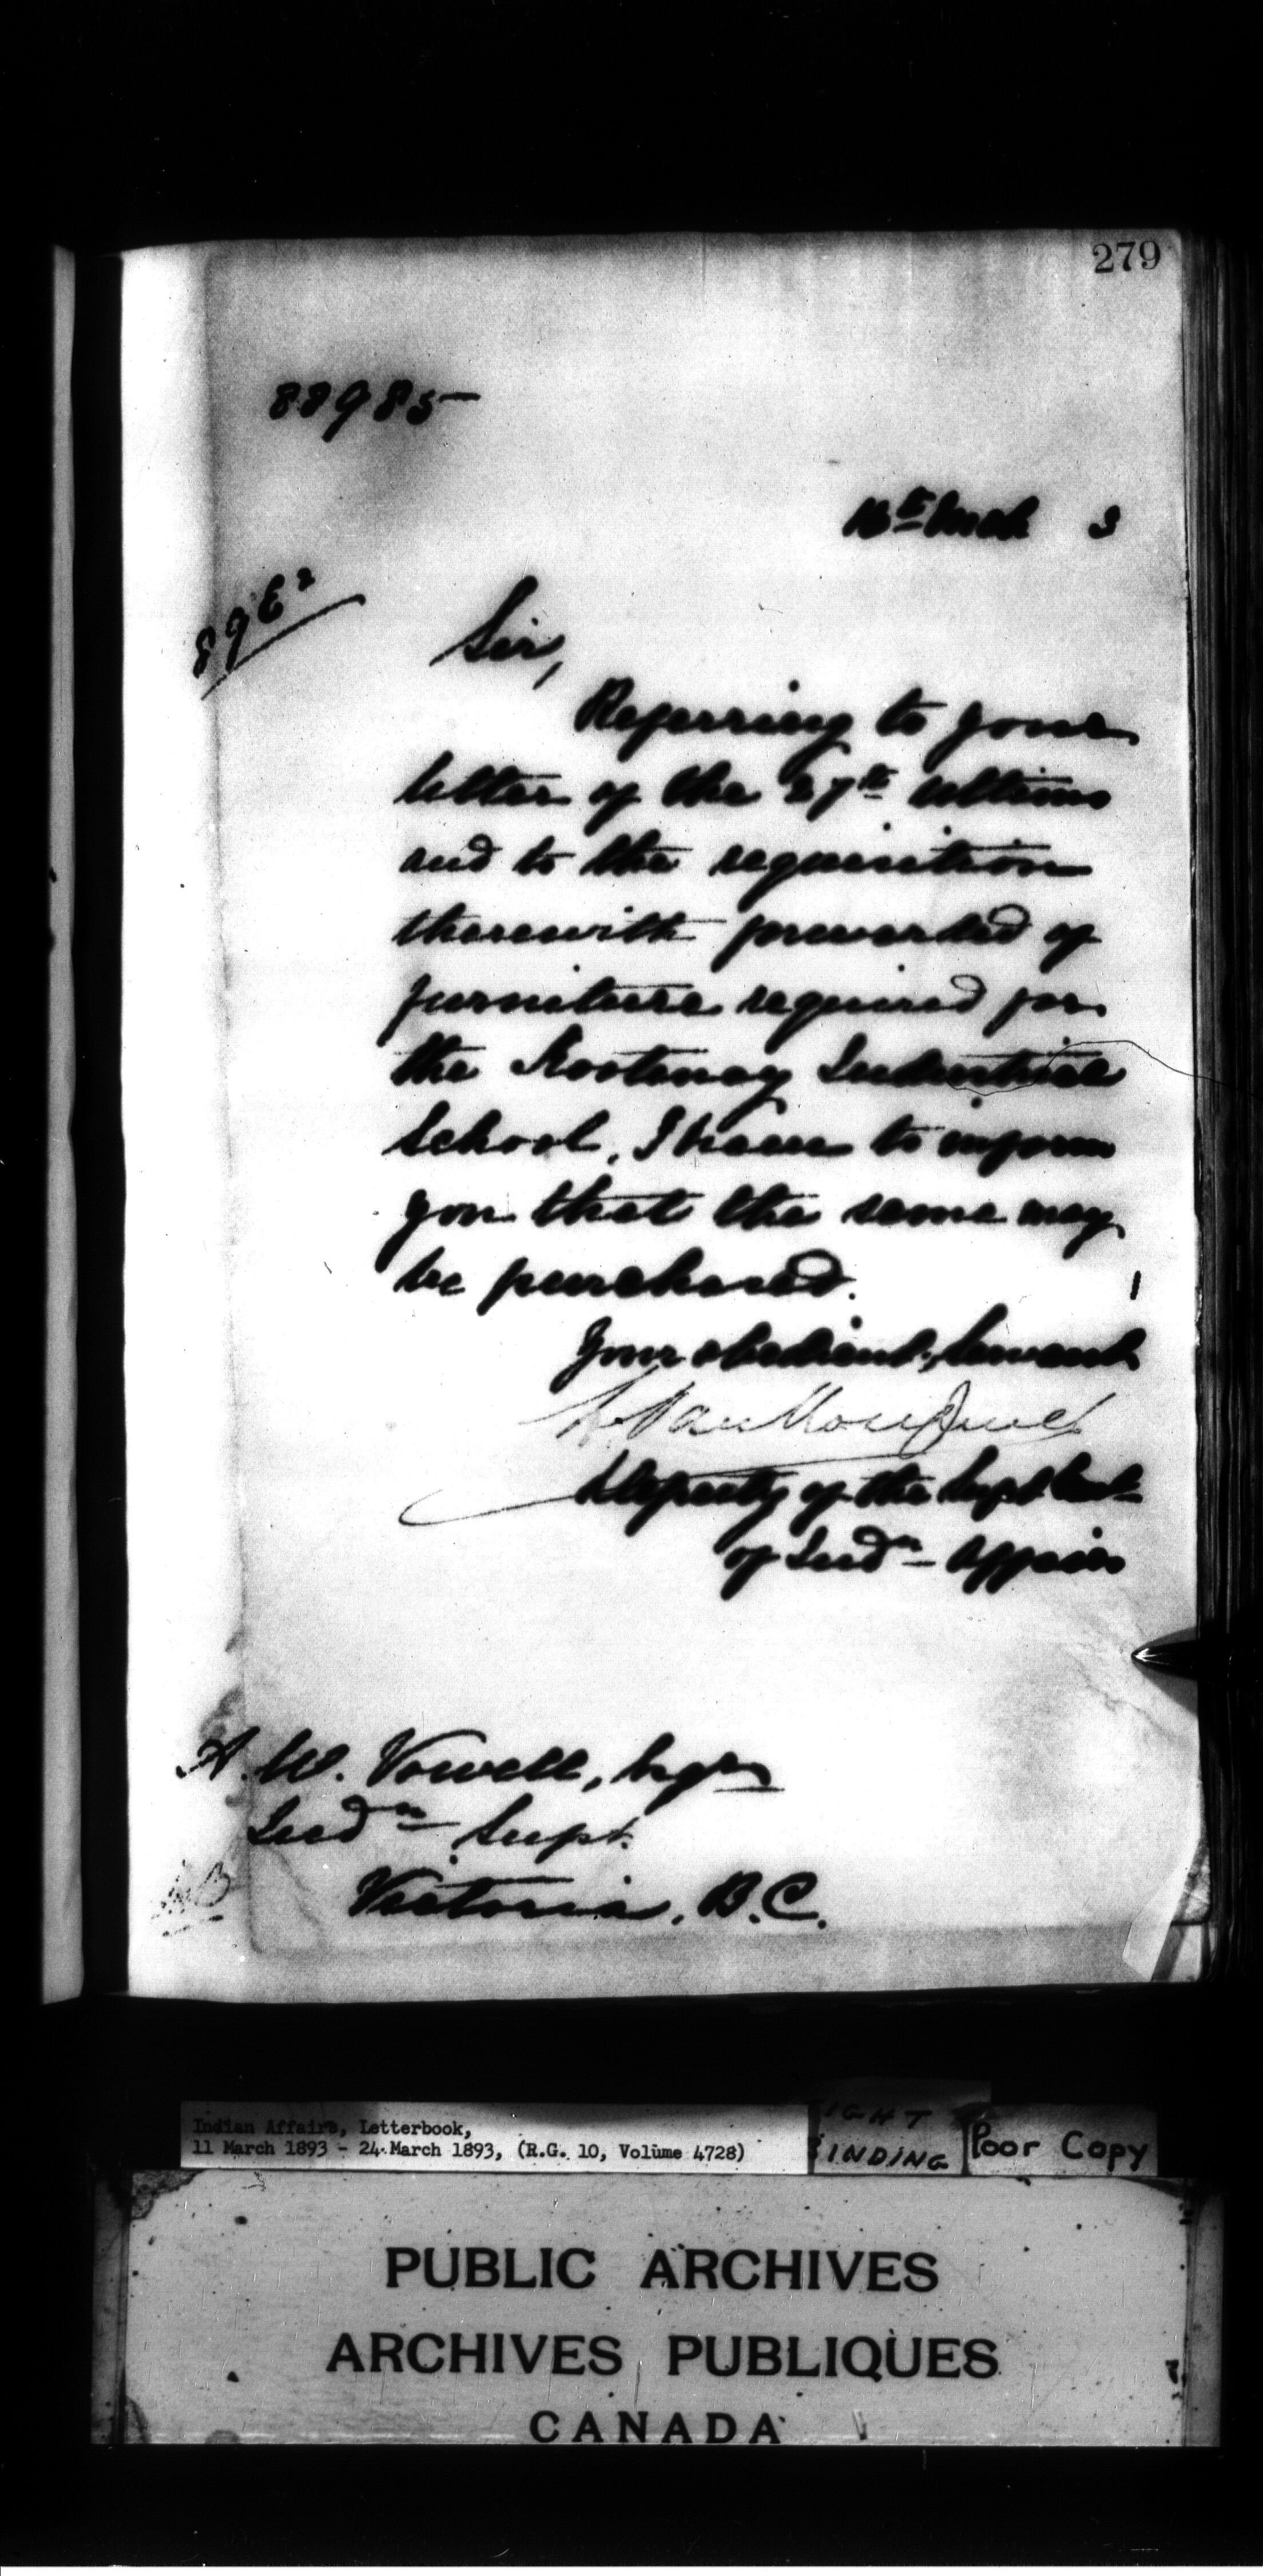 279
88985
16th March 3
Sir,
Referring to your
letter of the 27th ultimo
and to the requisition
therewith forwarded of
furniture required for
the Kootenay Industrial
School, I have to inform
you that the same may
be purchased.
Your obedient Servant
L. Vankoughnet
Deputy of the Supt Genl
of Indn Affairs
A. W. Vowell, Esqre
Indn Supt.
Victoria, B.C.
Indian Affairs, Letterbook,
11 March 1893 - 24 March 1893, (R.G. 10, Volume 4728)
INDING
Poor Copy
PUBLIC ARCHIVES
ARCHIVES PUBLIQUES
CANADA